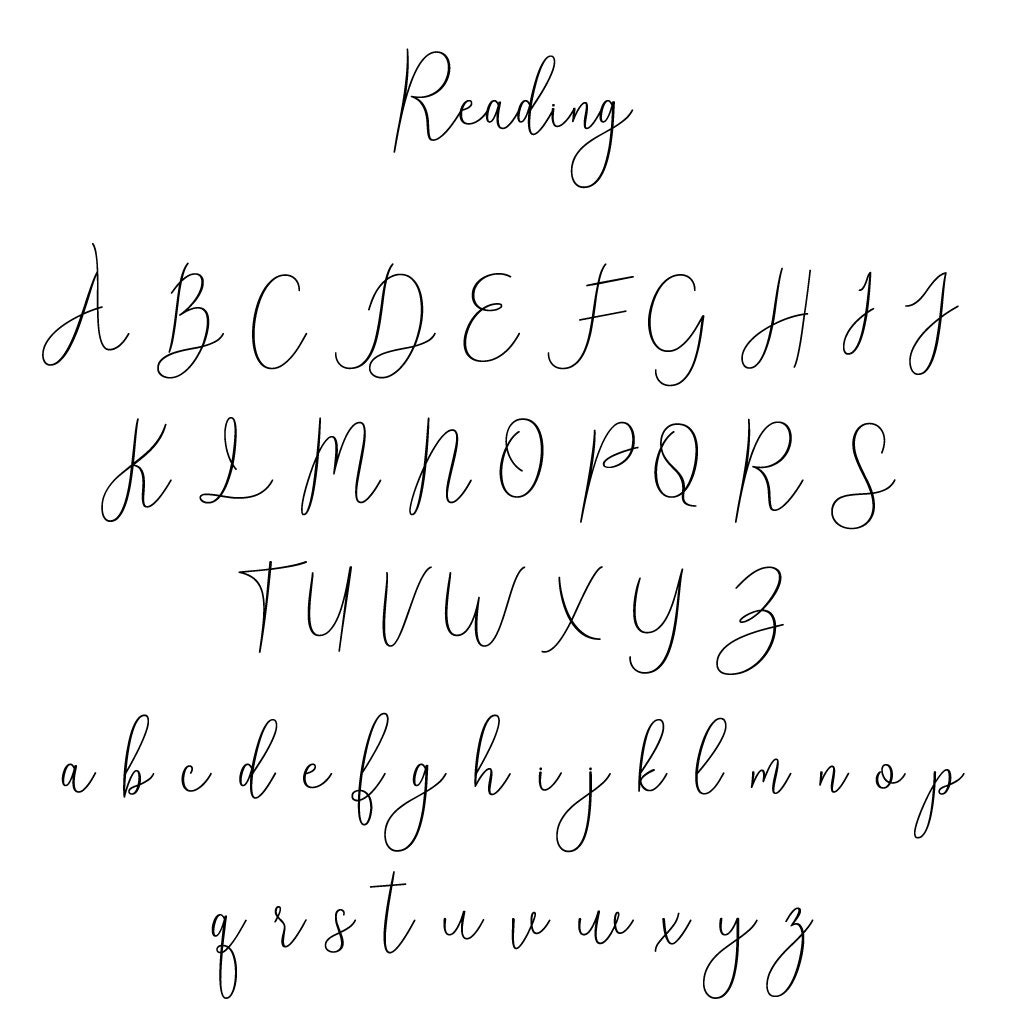 Reading
A B C D E F G H I J
K L M N O P Q R S
T U V W X Y Z
a b c d e f g h i j k l m n o p
q r s t u v w x y z